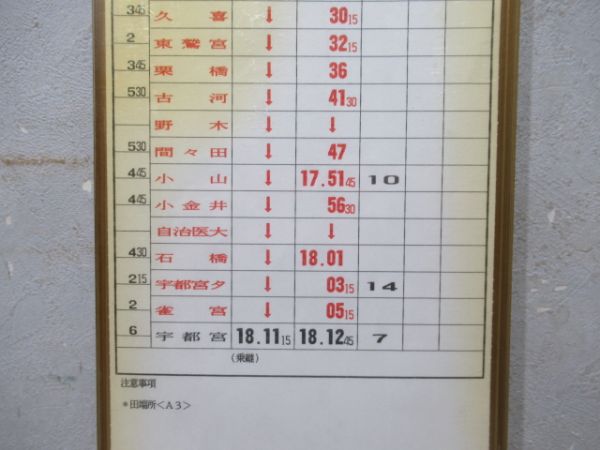 345 久喜 ↓ 30 15
2 東鷲宮 ↓ 32 15
345 栗橋 ↓ 36
530 古河 ↓ 41 30
野木 ↓ ↓
530 間々田 ↓ 47
445 小山 ↓ 17.51 45 10
445 小金井 ↓ 56 30
自治医大 ↓ ↓
430 石橋 ↓ 18.01
215 宇都宮タ ↓ 03 15 14
2 雀宮 ↓ 05 15
6 宇都宮 18.11 15 18.12 45 7
(乗継)
注意事項
*田端所<A3>